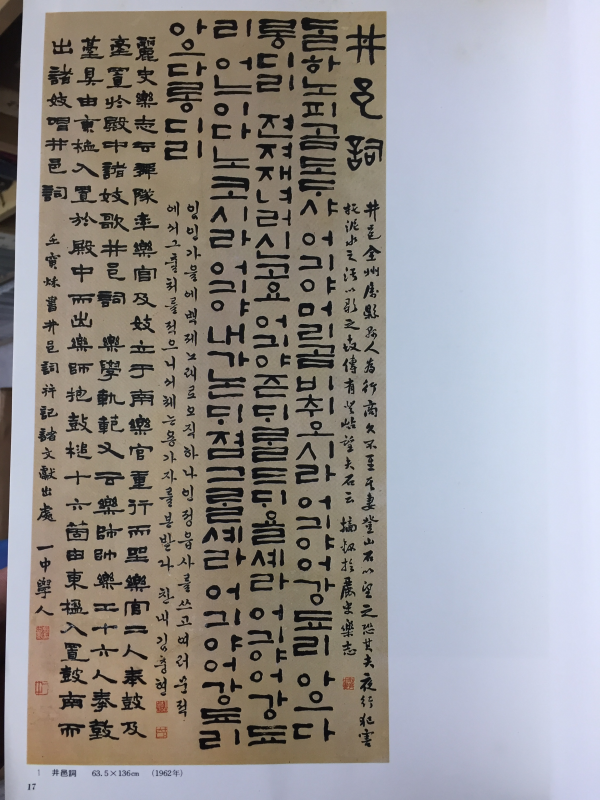 井邑詞
井邑全州屬縣縣人爲行商久不至其妻登山石以望之恐其夫夜行犯害
托泥水之汚以歌之世傳有登岾望夫石云 摘錄於麗史樂志
ᄃᆞᆯ하노피곰도ᄃᆞ샤 어긔야머리곰비추오시라 어긔야어강됴리 아으다
롱디리 젼져재녀러신고요 어긔야즌ᄃᆡᄅᆞᆯ드ᄃᆡ욜셰라 어긔야어강됴
리 어느이다노코시라 어긔야내가논ᄃᆡ졈그ᄅᆞᆯ셰라 어긔야어강됴리
아으다롱디리
임인가을에백제노래로오직하나인정읍사를쓰고여러문적
에서그출처를적으니서체는용가자를본받다 찬내김충현
麗史樂志云舞隊率樂官及妓立于南樂官重行而坐樂官二人奉鼓及
臺置於殿中諸妓歌井邑詞 樂學軌範又云樂師帥樂工十六人奉鼓
臺具由東楹入置於殿中而出樂師抱鼓槌十六箇由東楹入置鼓南而
出諸妓唱井邑詞 壬寅秋書井邑詞幷記諸文獻出處 一中學人
1 井邑詞 63.5×136㎝ (1962年)
17